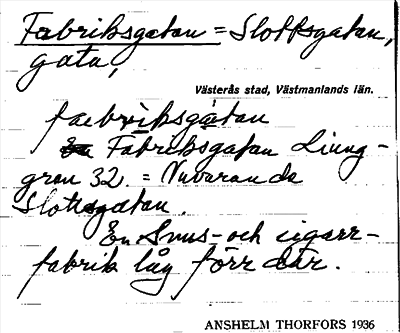 Fabriksgatan = Slottsgatan,
gata,
Västerås stad, Västmanlands län.
fabriksgatan
Fabriksgatan Ljung-
gren 32. = Nuvarande
Slottsgatan.
En Snus- och cigarr-
fabrik låg förr där.
ANSHELM THORFORS 1936